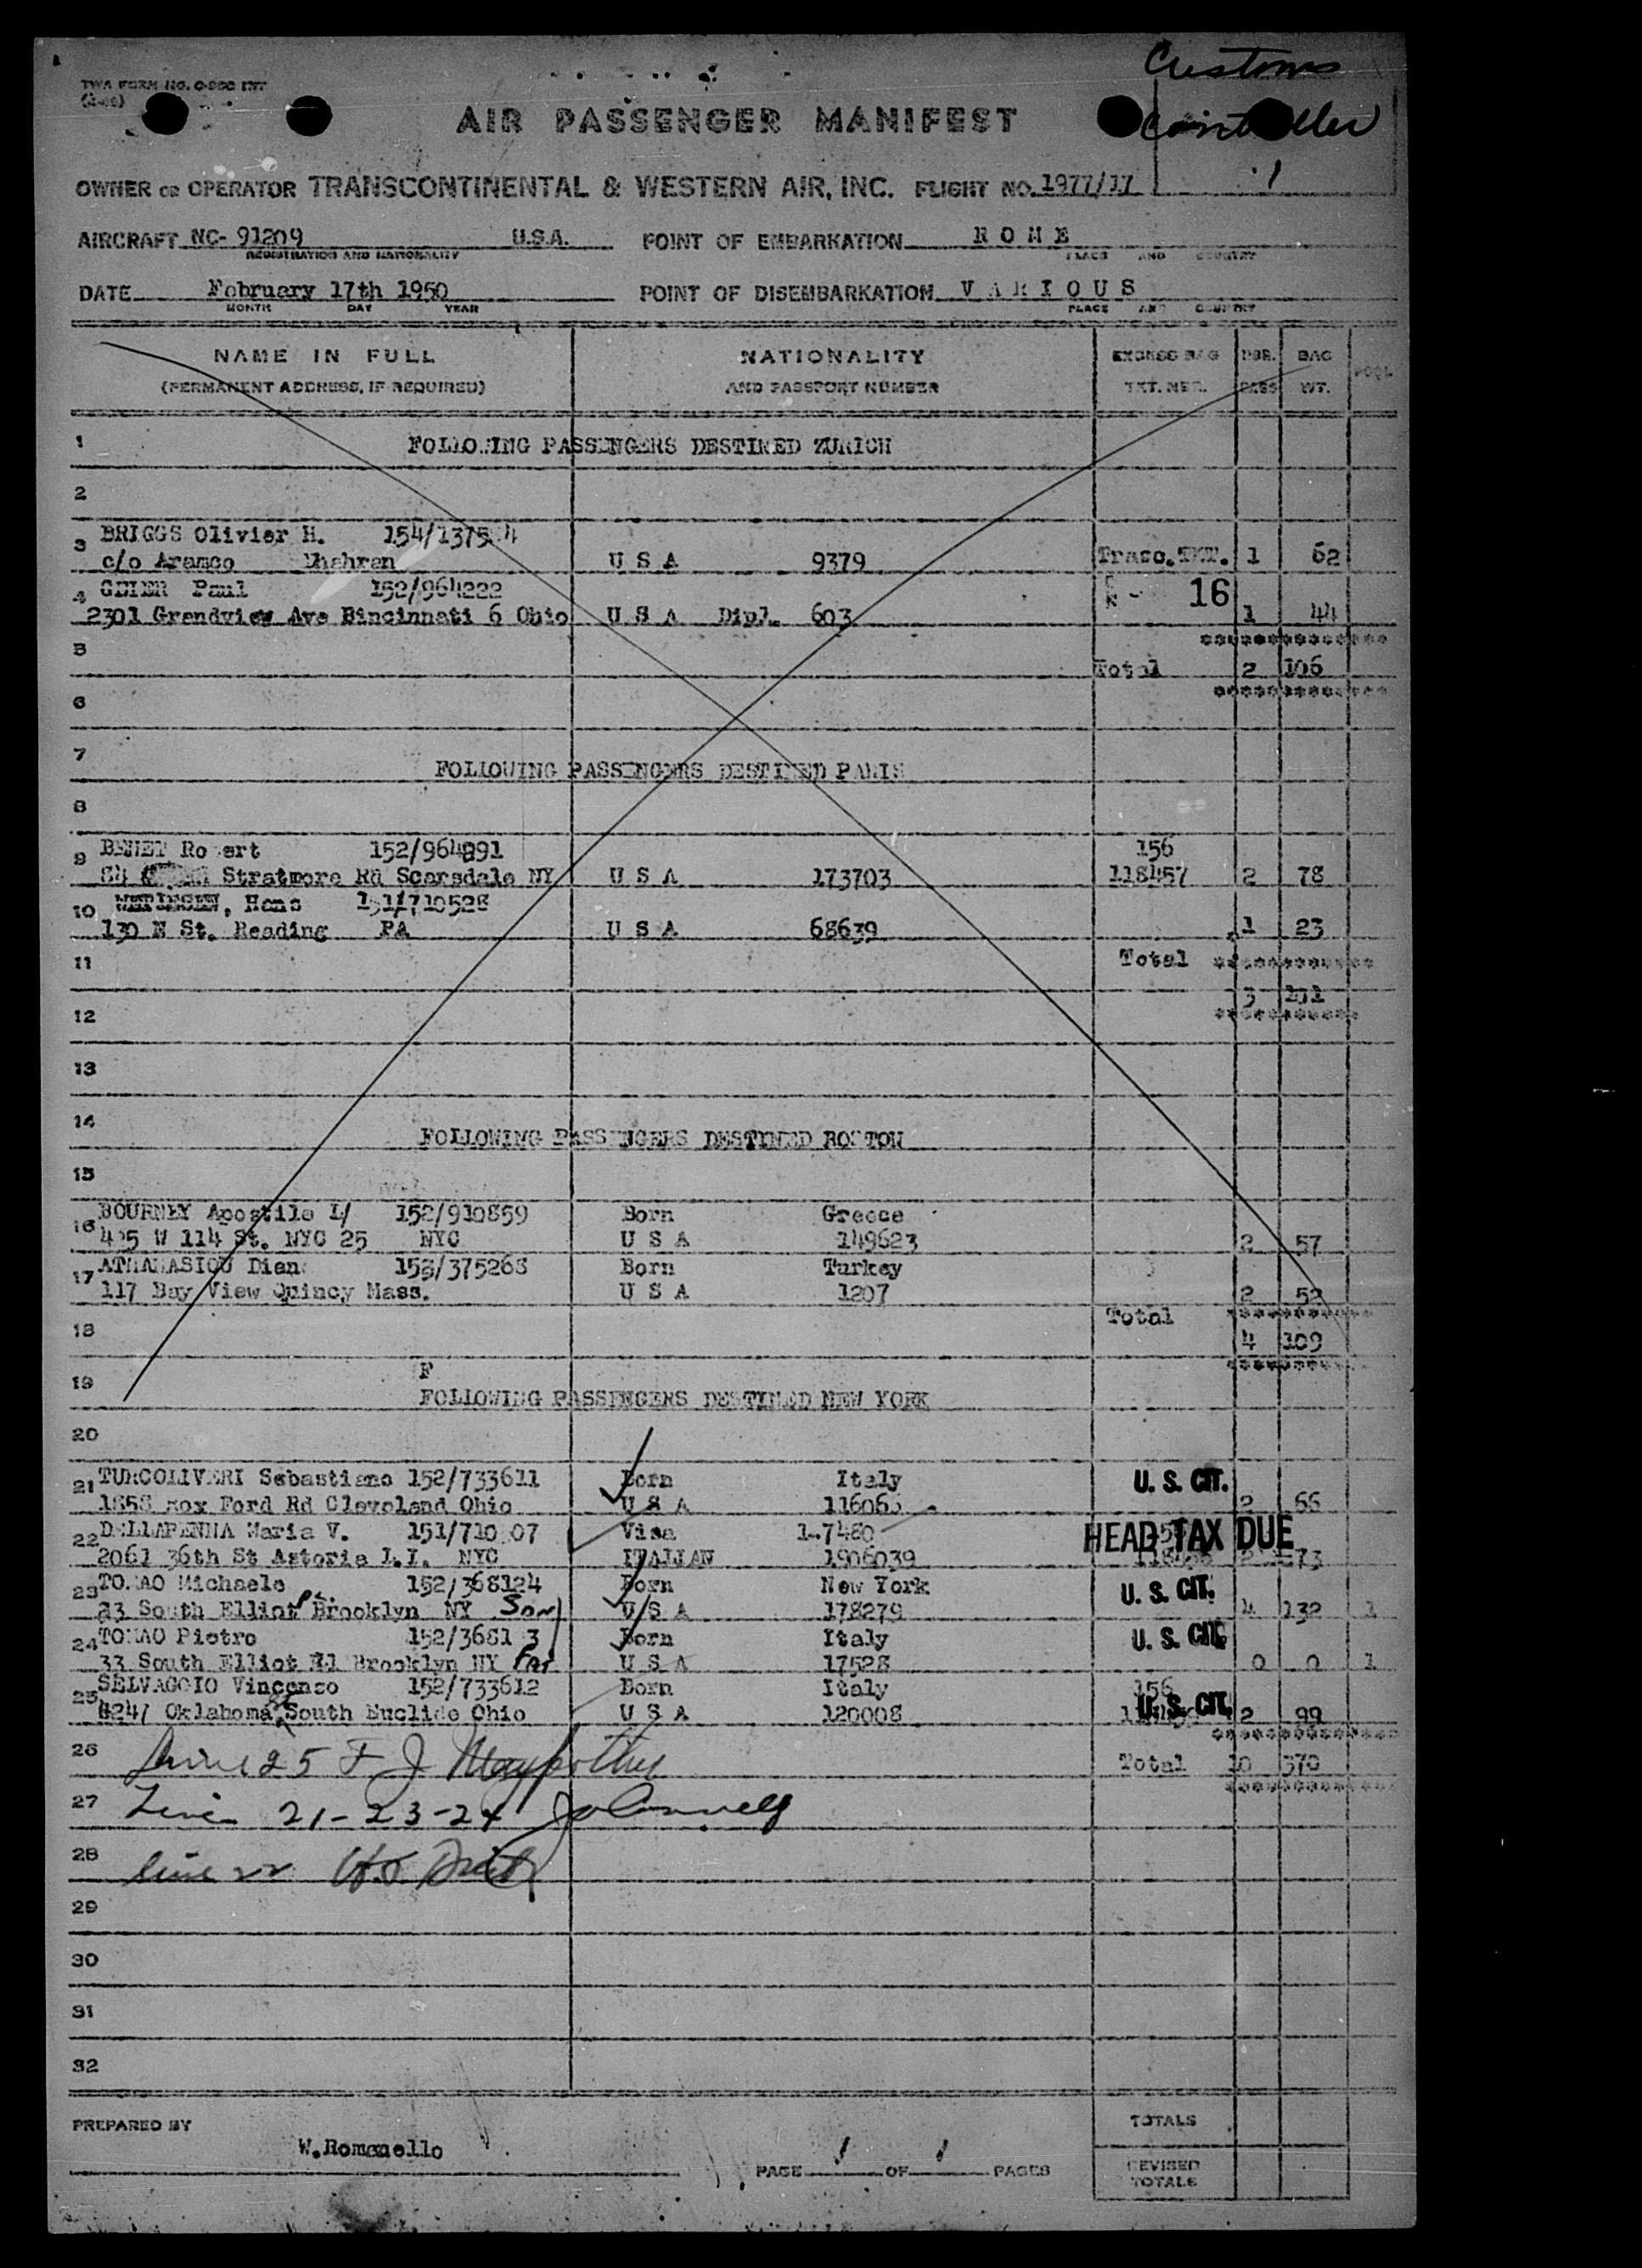 TWA FORM NO.
Customs
AIR PASSENGER MANIFEST
1
OWNER OR OPERATOR TRANSCONTINENTAL & WESTERN AIR, INC. FLIGHT NO. 1977/17
AIRCRAFT NC- 91209 U.S.A. POINT OF EMBARKATION R O M E
REGISTRATION AND NATIONALITY PLACE AND COUNTRY
DATE February 17th 1950 POINT OF DISEMBARKATION V A R I O U S
MONTH DAY YEAR PLACE AND COUNTRY
NAME IN FULL NATIONALITY EXCESS BAG NBR. BAG
(PERMANENT ADDRESS, IF REQUIRED) AND PASSPORT NUMBER TKT. NBR. PASS WT. POOL
1 FOLLOWING PASSENGERS DESTINED ZURICH
2
3 BRIGGS Olivier H.
c/o Aramco Dhahran U S A 9379 Trasc.TKT. 1 62
4 GEIER Paul 152/964222 16
2301 Grendview Ave Bincinnati 6 Ohio U S A Dipl. 603 1 44
5 Total 2 106
6
7 FOLLOWING PASSENGERS DESTINED PARIS
8
9 BENET 156
Stratmore Rd Scarsdale NY U S A 173703 118457 2 78
10 Hans
130 N St. Reading PA U S A 68639 1 23
11 Total
3 101
12
13
14 FOLLOWING PASSENGERS DESTINED BOSTON
15
16 BOURNEY Apostile L/ 152/910859 Born Greece
W 114 St. NYC 25 NYC U S A 149623 2 57
17 ATHANASIOU Born Turkey
117 Bay View Quincy Mass. U S A 1207 2 52
Total
18 4 109
F
19 FOLLOWING PASSENGERS DESTINED NEW YORK
20
21 TURCOLIVERI Sebastiano 152/733611 Born Italy U. S. CIT.
Ford Rd Cleveland Ohio U S A 2 66
22 DELLAPENNA Maria V. Visa HEAD TAX DUE
2061 36th St Astoria L.I. NYC ITALIAN 1906039 2 73
23 TOMAO Michaele 152/368124 Born New York U. S. CIT.
South Elliot Pl. Brooklyn NY Son U S A 178279 4 132 1
24 TOMAO Pietro Born Italy U. S. CIT.
33 South Elliot Brooklyn NY Fat U S A 17528 0 0 1
25 SELVAGGIO Vincenzo 152/733612 Born Italy 156
8247 Oklahoma St South Euclide Ohio U S A 120008 U. S. CIT. 2 99
26 Line 25 F J Total 10 370
27 Line 21-23-24
28 line 22
29
30
31
32
PREPARED BY TOTALS
W.Romanello
PAGE 1 OF 1 PAGES REVISED
TOTALS